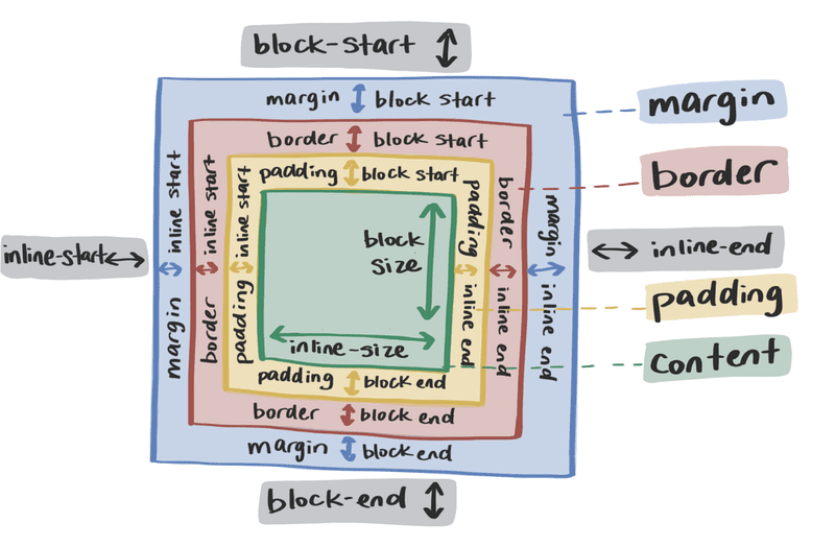 block-start
margin block start
border block start
padding block start
margin
border
inline-start
margin inline start
border inline start
padding inline start
block
size
inline-size
padding inline end
border inline end
margin inline end
inline-end
padding
content
padding block end
border block end
margin block end
block-end